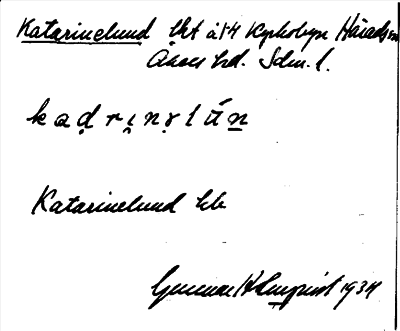 Katarinelund lht å 1/4 Kyrkobyn Härads sn
Åkers hd. Sdm. l.
kadrinəlún
Katarinelund hb
Gunnar Holmquist 1934